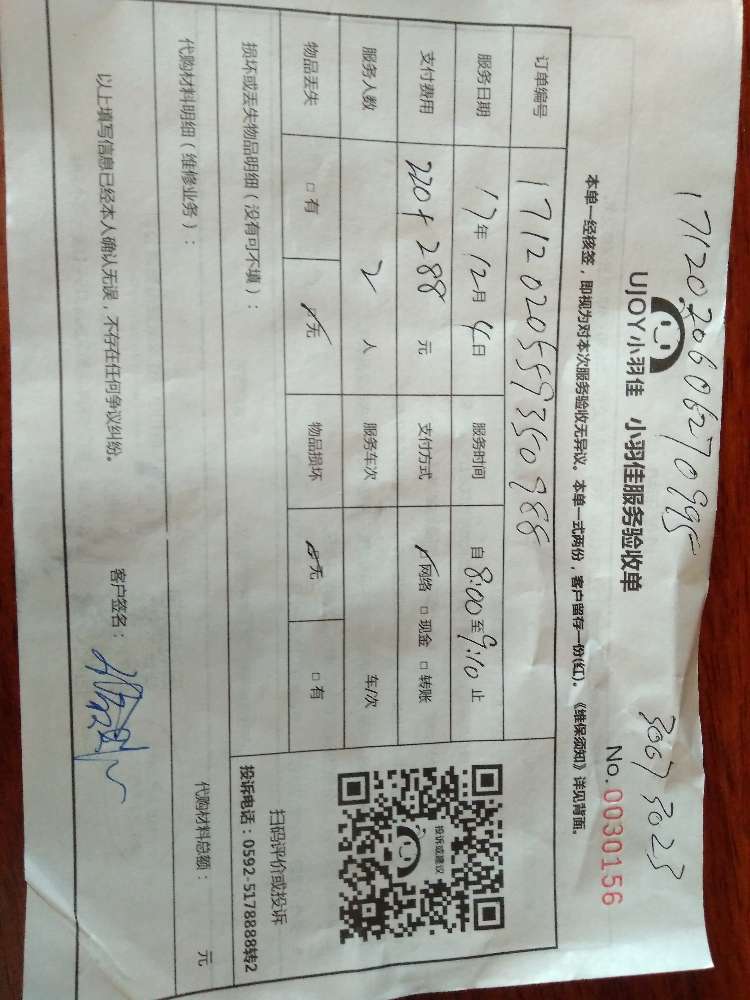 171202060627099 5
3067 3023
UJOY小羽佳 小羽佳服务验收单
No. 0030156
本单一经核签，即视为对本次服务验收无异议。本单一式两份，客户留存一份(红)。《维保须知》详见背面。
订单编号 171202055935098 8
服务日期 17年 12月 4日 服务时间 自 8:00 至 9:10 止
支付费用 220+288 元 支付方式 ☑网络 □现金 □转账
服务人数 2 人 服务车次 车/次
物品丢失 □有 ☑无 物品损坏 ☑无 □有
投诉或建议
扫码评价或投诉
投诉电话：0592-5178888转2
损坏或丢失物品明细（没有可不填）：
代购材料明细（维修业务）：
代购材料总额： 元
以上填写信息已经本人确认无误，不存在任何争议纠纷。 客户签名：